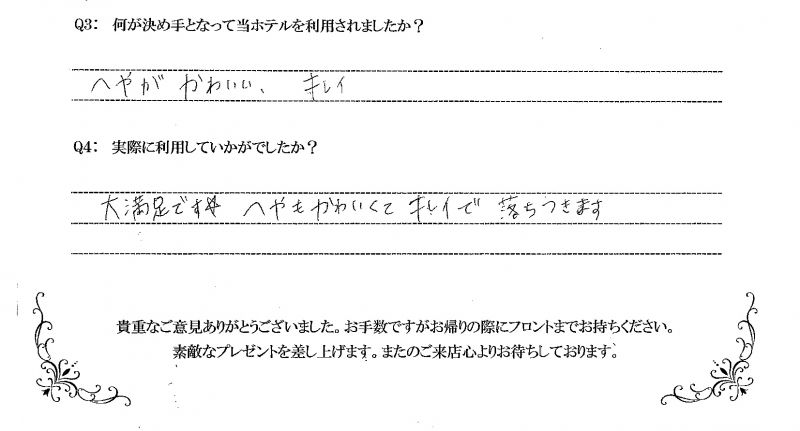 Q3: 何が決め手となって当ホテルを利用されましたか？
へやが かわいい、 キレイ
Q4: 実際に利用していかがでしたか？
大満足です☆ へやもかわいくて キレイで 落ちつきます
貴重なご意見ありがとうございました。お手数ですがお帰りの際にフロントまでお持ちください。
素敵なプレゼントを差し上げます。またのご来店心よりお待ちしております。